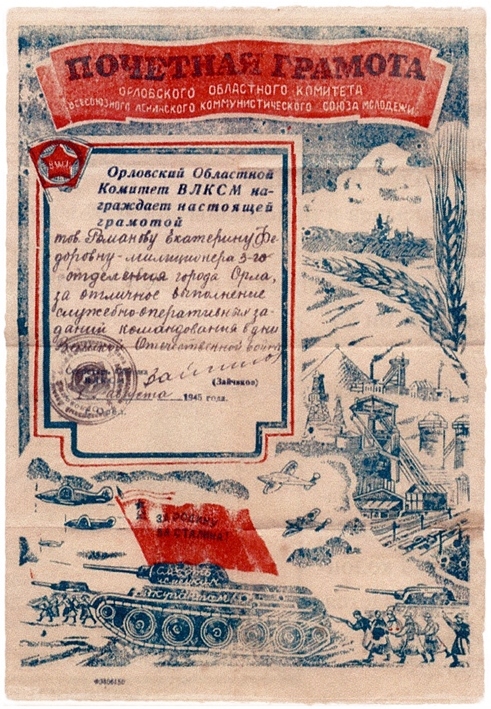 ПОЧЕТНАЯ ГРАМОТА
ОРЛОВСКОГО ОБЛАСТНОГО КОМИТЕТА
ВСЕСОЮЗНОГО ЛЕНИНСКОГО КОММУНИСТИЧЕСКОГО СОЮЗА МОЛОДЕЖИ
Орловский Областной
Комитет ВЛКСМ на-
граждает настоящей
грамотой
тов. Романову Екатерину Фе-
доровну - милиционера 3-го
отделения города Орла,
за отличное выполнение
служебно-оперативных за-
даний командования в дни
Великой Отечественной войны
Секретарь
(Зайчиков)
августа 1945 года.
ЗА РОДИНУ
ЗА СТАЛИНА!